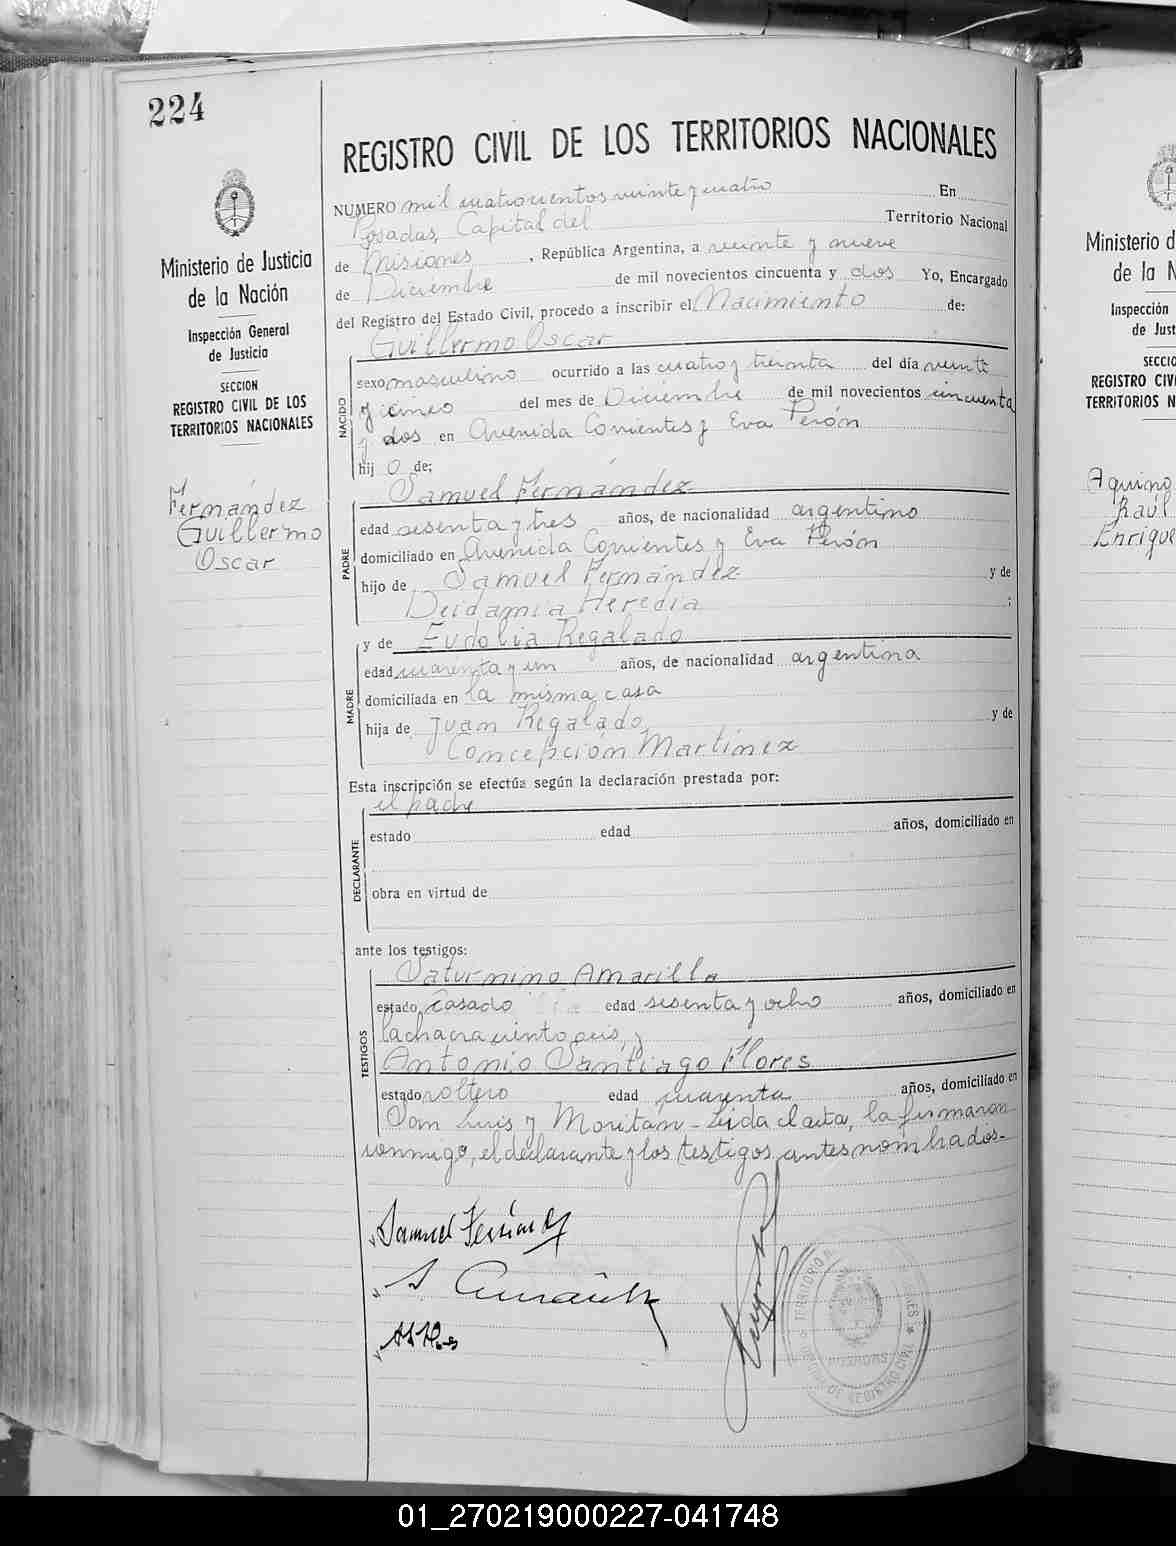 224
REGISTRO CIVIL DE LOS TERRITORIOS NACIONALES
Ministerio de Justicia
de la Nación
Inspección General
de Justicia
SECCION
REGISTRO CIVIL DE LOS
TERRITORIOS NACIONALES
Fernández
Guillermo
Oscar
NUMERO mil cuatrocientos veinte y cuatro En
Posadas, Capital del Territorio Nacional
de Misiones, República Argentina, a veinte y nueve
de Diciembre de mil novecientos cincuenta y dos Yo, Encargado
del Registro del Estado Civil, procedo a inscribir el Nacimiento de:
Guillermo Oscar
NACIDO
sexo masculino ocurrido a las cuatro y treinta del día veinte
y cinco del mes de Diciembre de mil novecientos cincuenta
y dos en Avenida Corrientes y Eva Perón
hij o de:
Samuel Fernández
PADRE
edad sesenta y tres años, de nacionalidad argentino
domiciliado en Avenida Corrientes y Eva Perón
hijo de Samuel Fernández y de
Deidamia Heredia ;
y de Eudolia Regalado
MADRE
edad cuarenta y un años, de nacionalidad argentina
domiciliada en la misma casa
hija de Juan Regalado y de
Concepción Martínez
Esta inscripción se efectúa según la declaración prestada por:
el padre
DECLARANTE
estado edad años, domiciliado en
obra en virtud de
ante los testigos:
Saturnino Amarilla
TESTIGOS
estado casado edad sesenta y ocho años, domiciliado en
la chacra ciento seis, y
Antonio Santiago Flores
estado soltero edad cuarenta años, domiciliado en
San Luis y Moritán - Leida el acta, la firmaron
conmigo, el declarante y los testigos antes nombrados.-
Samuel Fernández
TERRITORIO
POSADAS
REGISTRO CIVIL
Ministerio d
de la N
Inspección
de Just
SECCIO
REGISTRO CIVI
TERRITORIOS N
Aquino
Raúl
Enrique
01_270219000227-041748